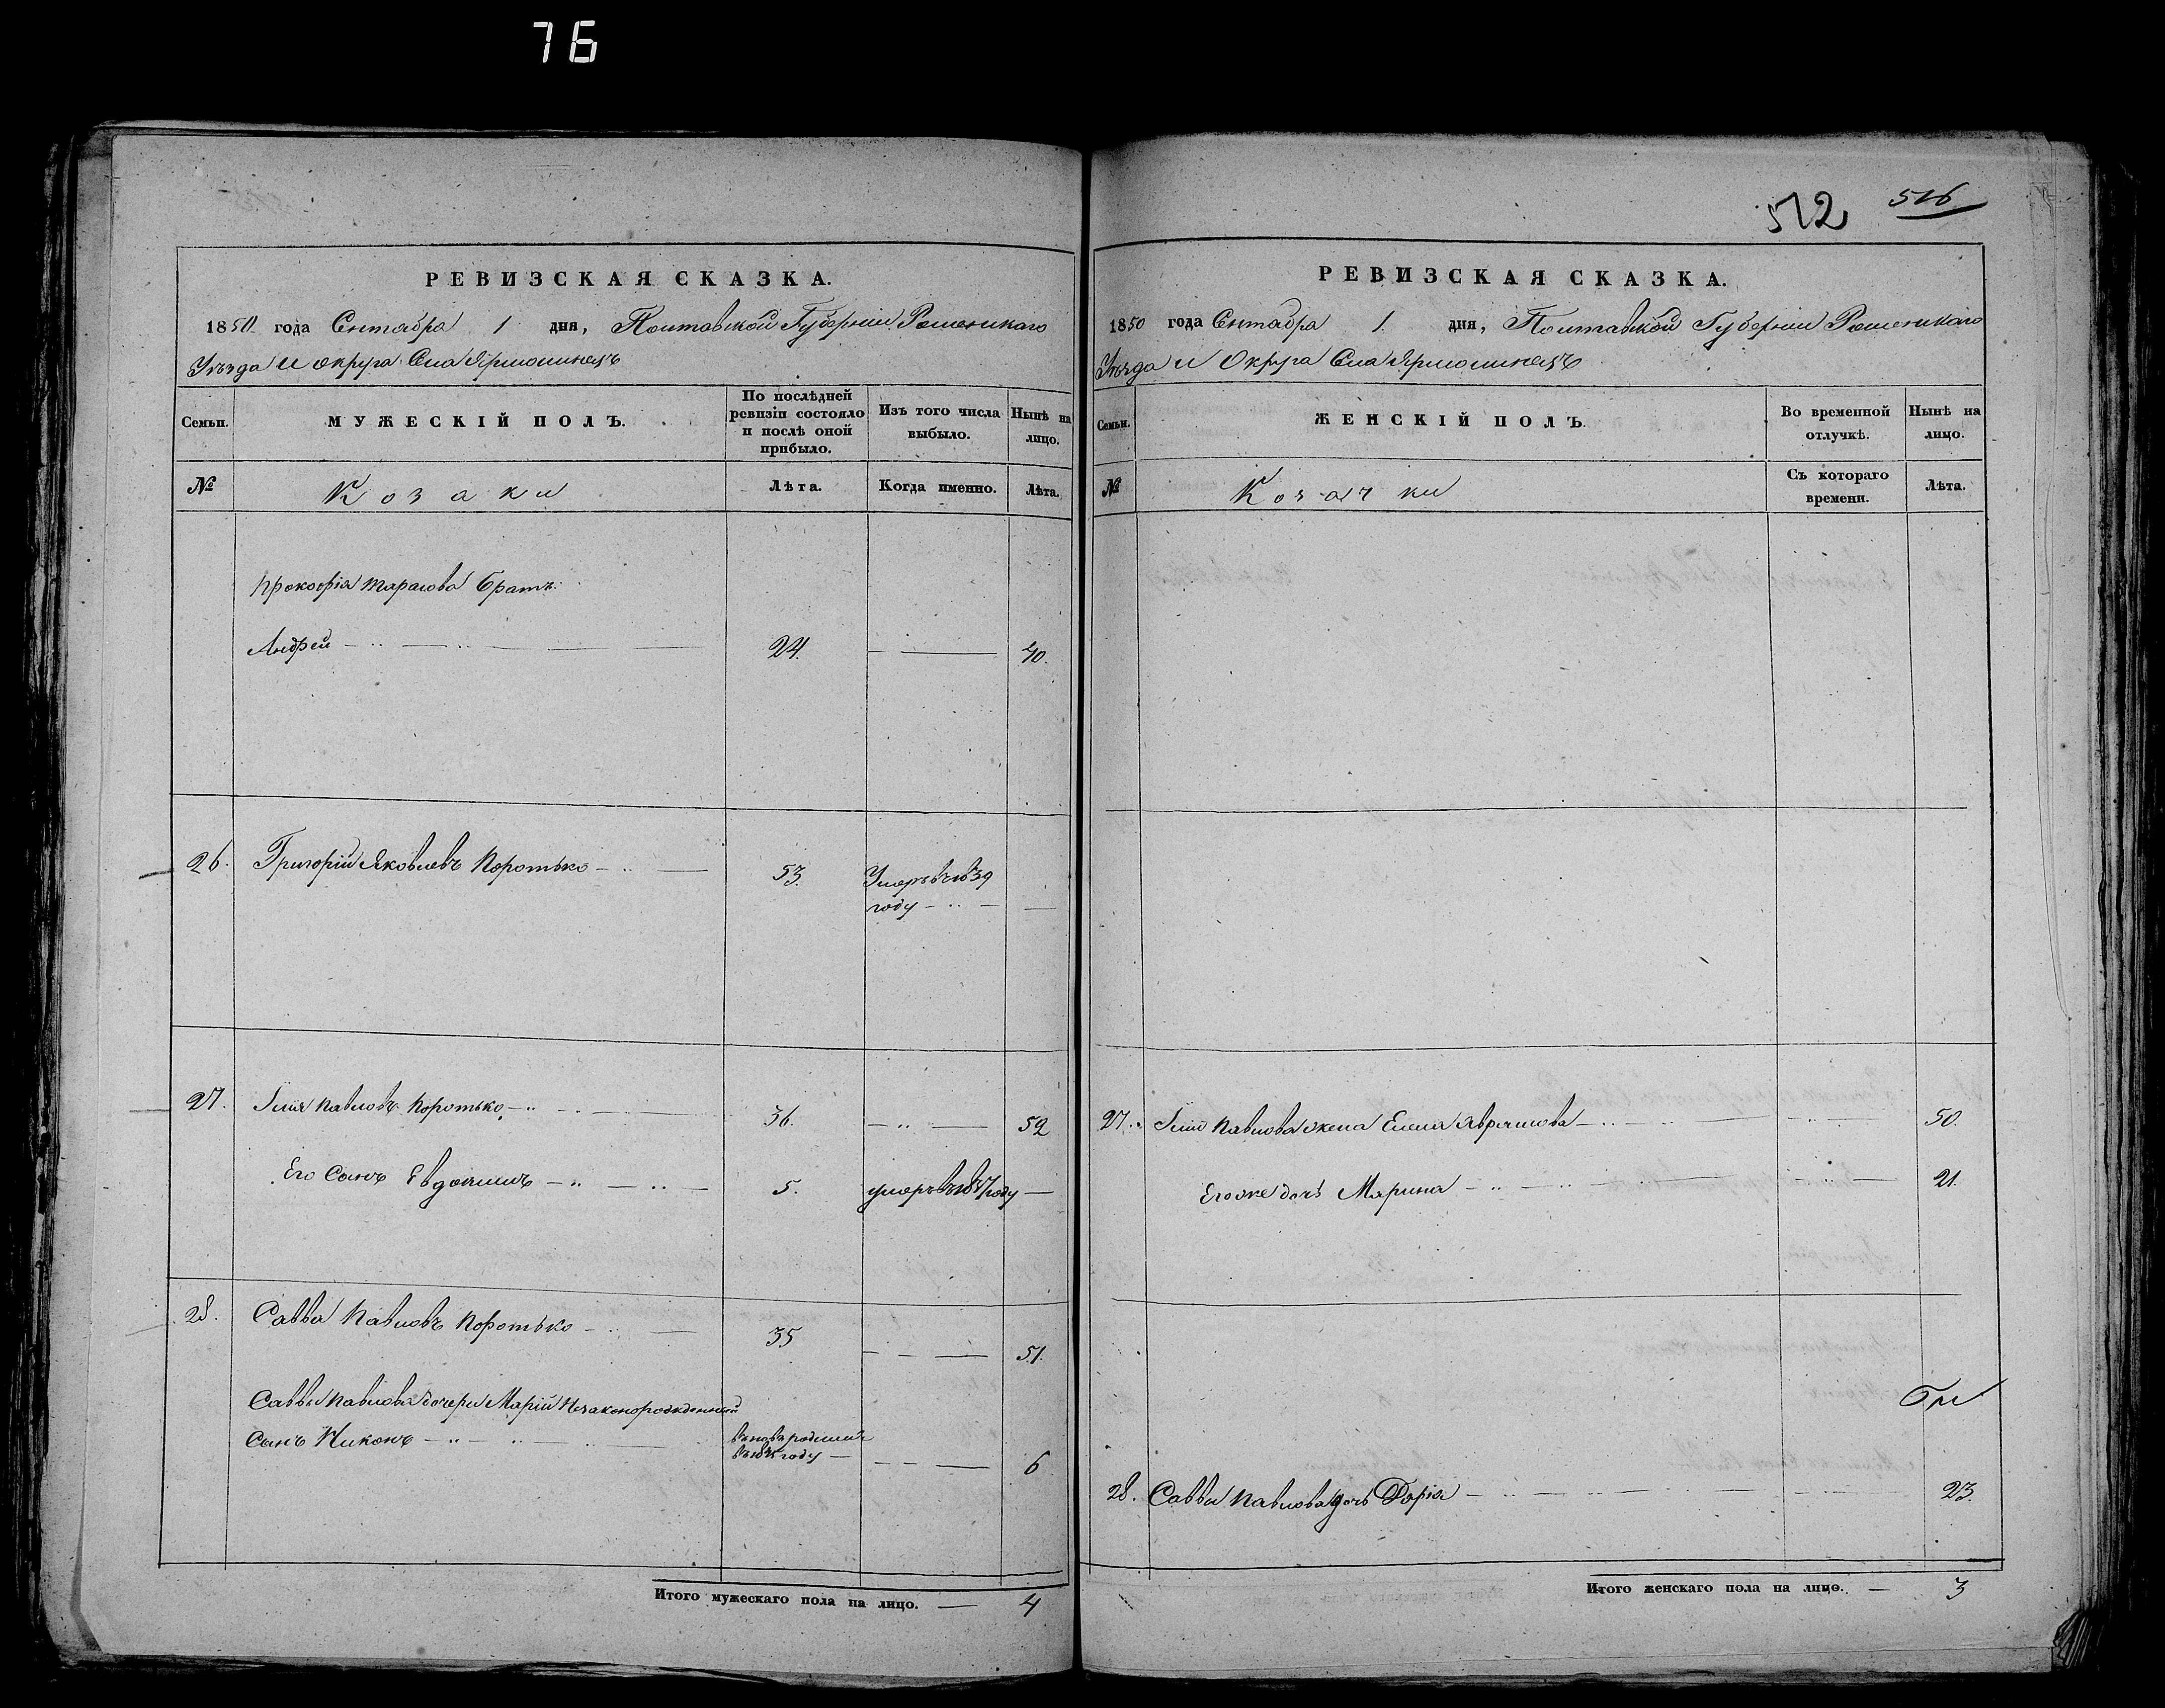 76
РЕВИЗСКАЯ СКАЗКА.
1850 года Сентабра 1 дня, Полтавской Губерніи Роменскаго
Уѣзда и округа Села Ярмолинецъ
Семьи.
МУЖЕСКІЙ ПОЛЪ.
По послѣдней
ревизіи состояло
и послѣ оной
прибыло.
Изъ того числа
выбыло.
Нынѣ на
лицо.
№
Козаки
Лѣта.
Когда именно.
Лѣта.
Прокофія Тарасова братъ
Андрей 24. 40.
26. Григорій Яковлевъ Коротько 53. Умеръ въ 1839
году
27. Илія Павловъ Коротько 36. 52
Его Сынъ Евдокимъ 5. умеръ въ 1847 году
28. Савва Павловъ Коротько 35 51.
Саввы Павлова дочери Маріи Незаконорожденный
Сынъ Никонъ вновь родился
году 6
Итого мужескаго пола на лицо. 4
512 516
РЕВИЗСКАЯ СКАЗКА.
1850 года Сентабра 1 дня, Полтавской Губерніи Роменскаго
Уѣзда и Округа Села Ярмолинецъ
Семьи.
ЖЕНСКІЙ ПОЛЪ.
Во временной
отлучкѣ.
Нынѣ на
лицо.
№
Козачки
Съ котораго
времени.
Лѣта.
27. Иліи Павлова жена Елена Аврамова 50.
Его же дочь Марина 21.
28. Саввы Павлова дочь Дарія 23.
Итого женскаго пола на лицо. 3